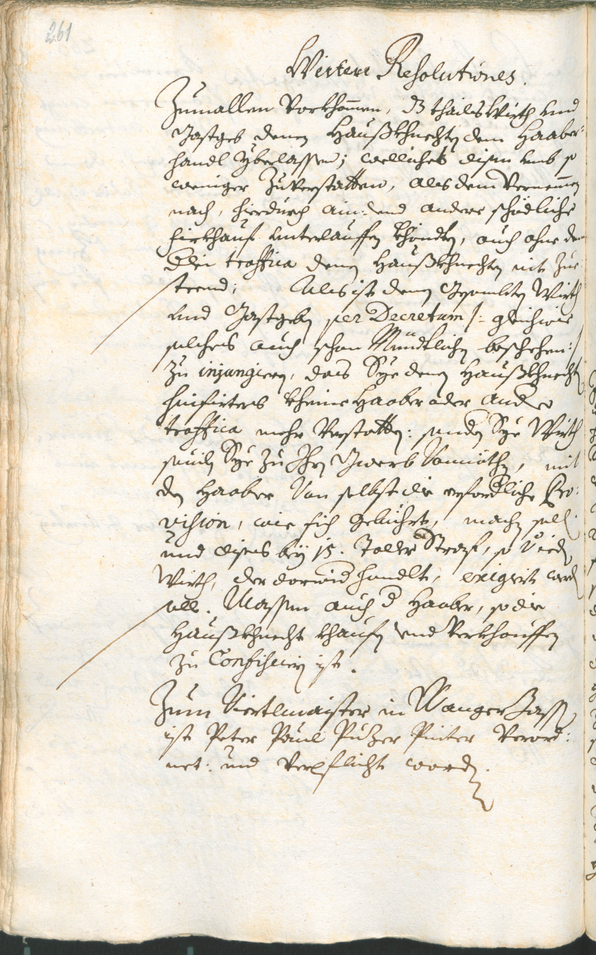 261
Weitere Resolutiones.
Zumallen vorkhomen, dz theils Würth und
Gastgeb denen Haußkhnechten den Haaber-
handl yberlassen; welliches disen umb so
weniger zuverstatten, als dem Vernemmen
nach, hierdurch ain: und andere schödliche
fürkhauf unterlauffen khöndten, auch ohne dem
die traffica denen Haußkhnechten nit zue-
stend; Als ist denen Würth
und Gastgeben per Decretum /: gleichwie
solches auch schon Mündtlich beschehen :/
zu injungiern, dass Sye denen Haußkhnechten
hinfüran kheine Haaber oder andere
traffica mehr verstatten: sondern Sye Würth
sovil Sye zu Ihren Gwerb vonnöthen, mit
den Haaber von selbst die erforderliche Pro-
vision, wie sich gebührt, machen sollen
und dises bey 15. Taller Straf, so von ieden
Würth, der darwider handlt, exigiert werden
solle. Massen auch der Haaber, so die
Haußkhnecht khaufen und verkhauffen
zu Confisciern ist.
Zum Viertlmaister in Wangergassen
ist Peter Paul Puzer Pinter verord-
net: und verpflicht worden.